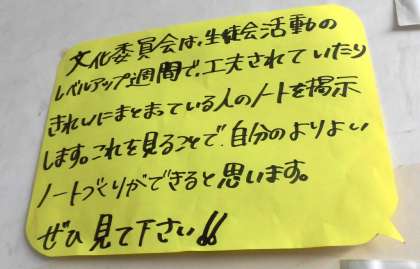 文化委員会は、生徒会活動の
レベルアップ週間で、工夫されていたり
きれいにまとまっている人のノートを掲示
します。これを見ることで、自分のよりよい
ノートづくりができると思います。
ぜひ見て下さい!!